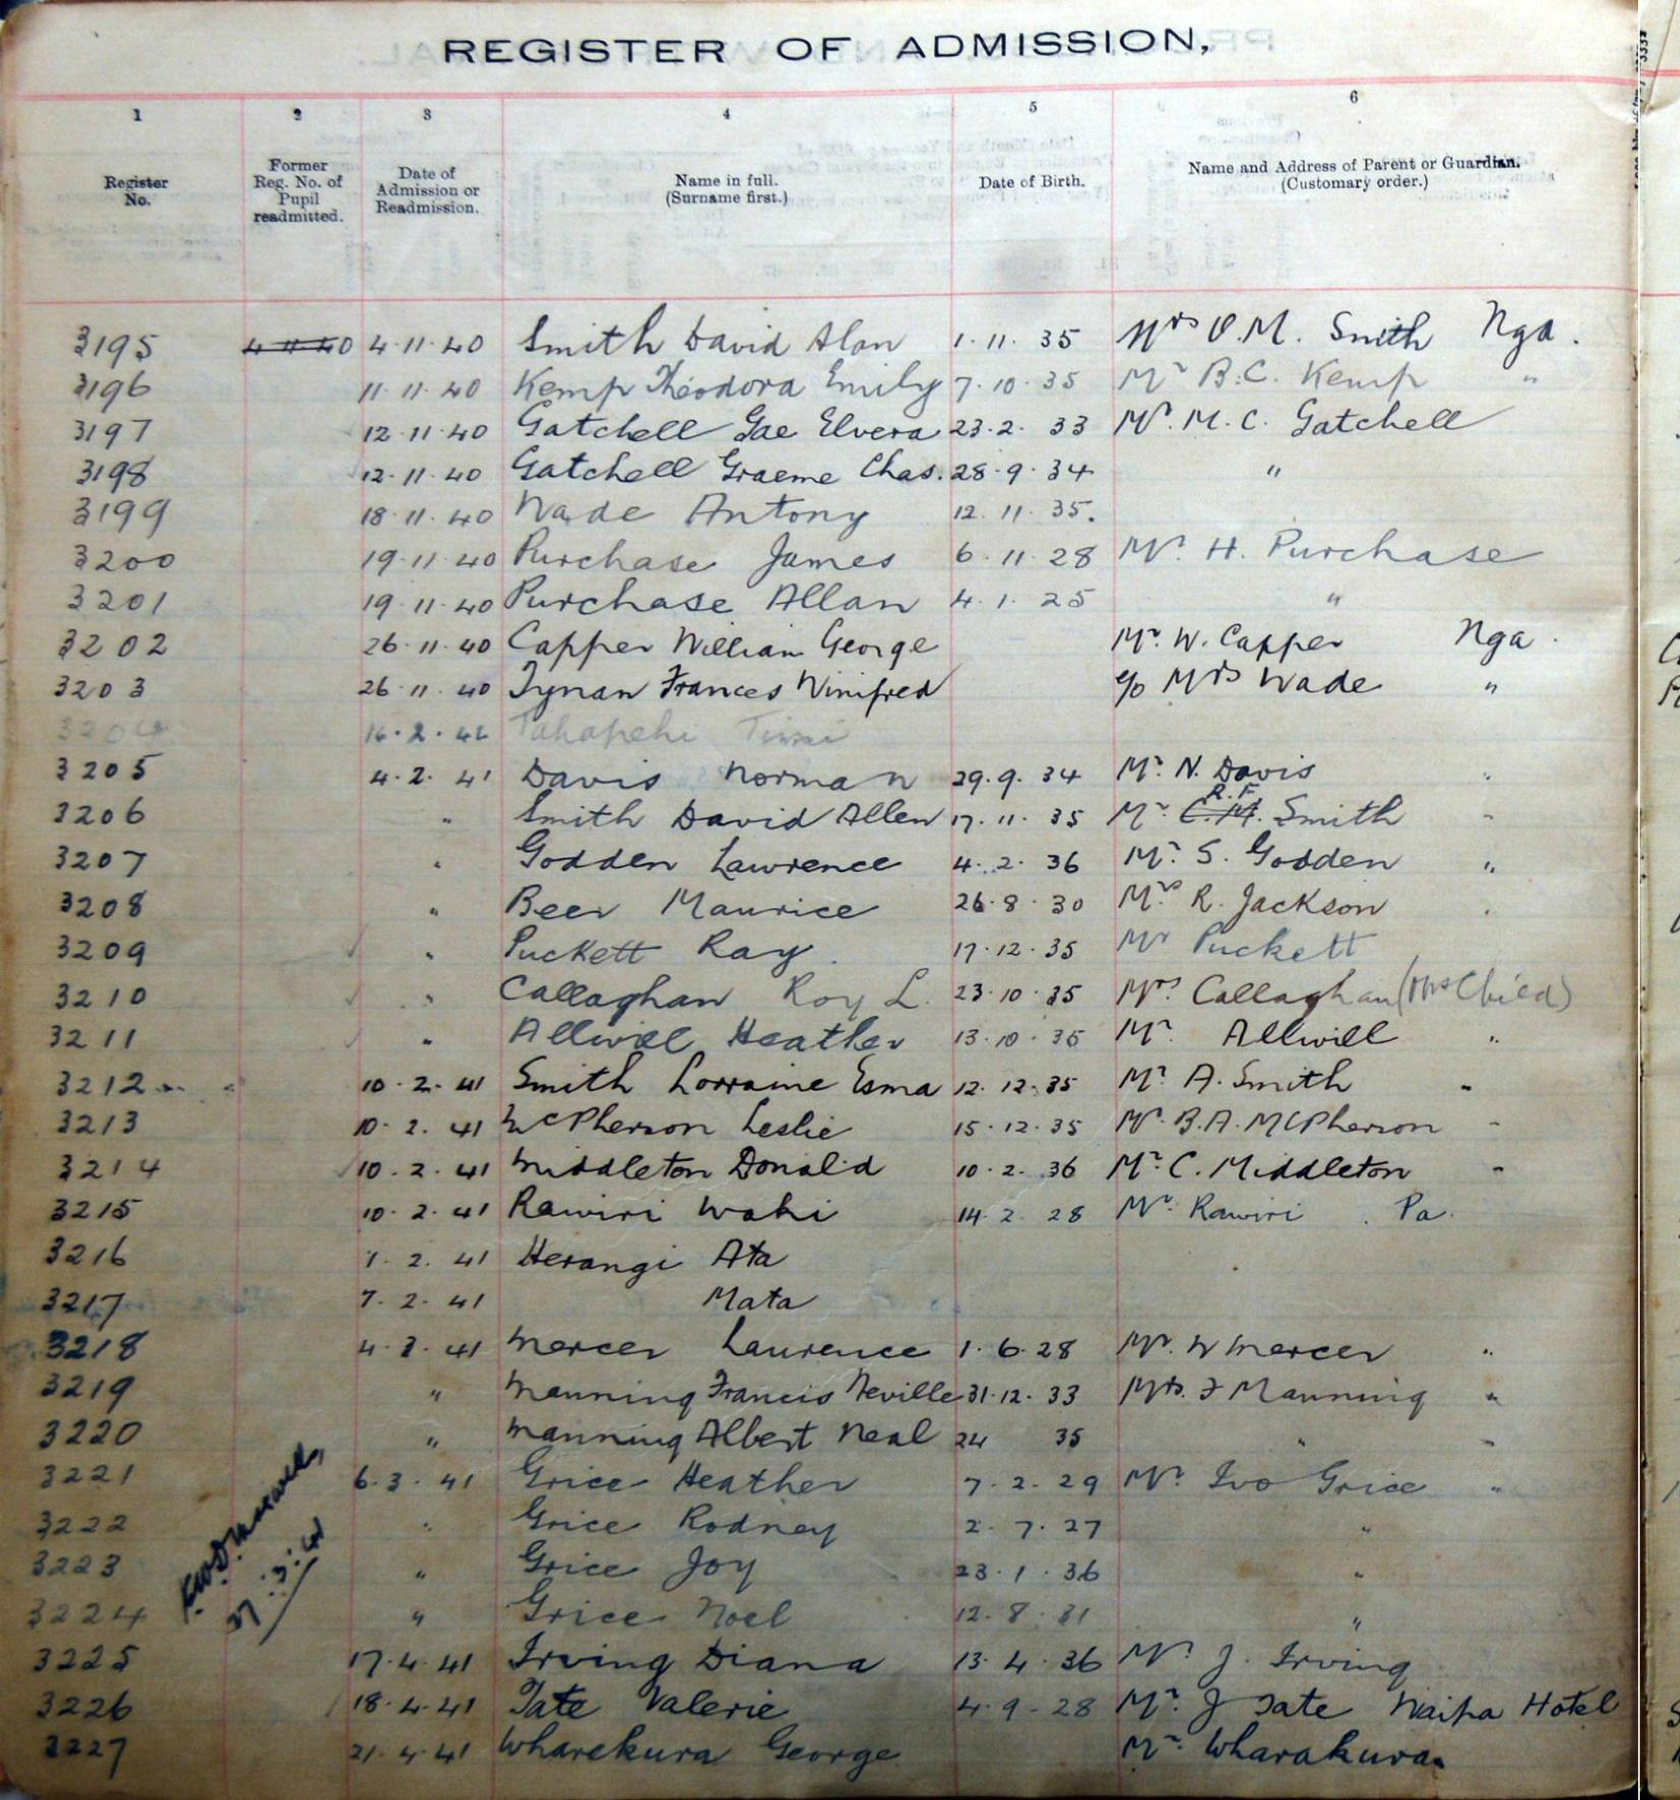 REGISTER OF ADMISSION,
1 2 3 4 5 6
Register No. Former Reg. No. of Pupil readmitted. Date of Admission or Readmission. Name in full. (Surname first.) Date of Birth. Name and Address of Parent or Guardian. (Customary order.)
3195 4 11 40 4.11.40 Smith David Alan 1.11.35 Mrs O.M. Smith Nga.
3196 11.11.40 Kemp Theodora Emily 7.10.35 Mr B.C. Kemp "
3197 12.11.40 Gatchell Gae Elvera 23.2.33 Mr. M.C. Gatchell
3198 12.11.40 Gatchell Graeme Chas. 28.9.34 "
3199 18.11.40 Wade Antony 12.11.35.
3200 19.11.40 Purchase James 6.11.28 Mr. H. Purchase
3201 19.11.40 Purchase Allan 4.1.25 "
3202 26.11.40 Capper William George Mr. W. Capper Nga.
3203 26.11.40 Tynan Frances Winifred c/o Mrs Wade "
3204 Tahapehi
3205 4.2.41 Davis Norman 29.9.34 Mr. N. Davis "
3206 " Smith David Allen 17.11.35 Mr C.M. R.F. Smith "
3207 " Godden Lawrence 4.2.36 Mr. S. Godden "
3208 " Beer Maurice 26.8.30 Mrs R. Jackson "
3209 " Puckett Ray. 17.12.35 Mr Puckett
3210 " Callaghan Roy L. 23.10.35 Mrs Callaghan (Mrs Child)
3211 " Allwill Heather 13.10.35 Mr. Allwill "
3212 10.2.41 Smith Lorraine Esma 12.12.35 Mr. A. Smith "
3213 10.2.41 McPherson Leslie 15.12.35 Mr. B.A. McPherson "
3214 10.2.41 Middleton Donald 10.2.36 Mr. C. Middleton "
3215 10.2.41 Rawiri Wahi 14.2.28 Mr. Rawiri Pa.
3216 7.2.41 Herangi Ata
3217 7.2.41 Mata
3218 4.3.41 Mercer Laurence 1.6.28 Mr. W Mercer "
3219 " Manning Francis Neville 31.12.33 Mrs. F Manning "
3220 " Manning Albert Neal 24 35 " "
3221 6.3.41 Grice Heather 7.2.29 Mr. Ivo Grice "
3222 " Grice Rodney 2.7.27 "
3223 " Grice Joy 23.1.36 "
3224 " Grice Noel 12.8.31 "
3225 17.4.41 Irving Diana 13.4.36 Mr. J. Irving
3226 18.4.41 Tate Valerie 4.9.28 Mr. J Tate Waipa Hotel
3227 21.4.41 Wharekura George Mr. Wharakura.